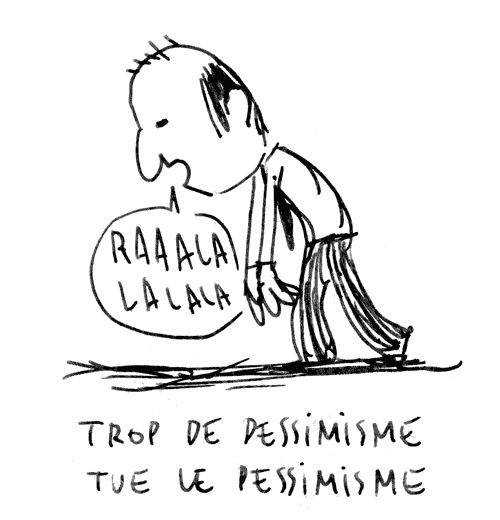 RAAALA
LALALA
TROP DE PESSIMISME
TUE LE PESSIMISME